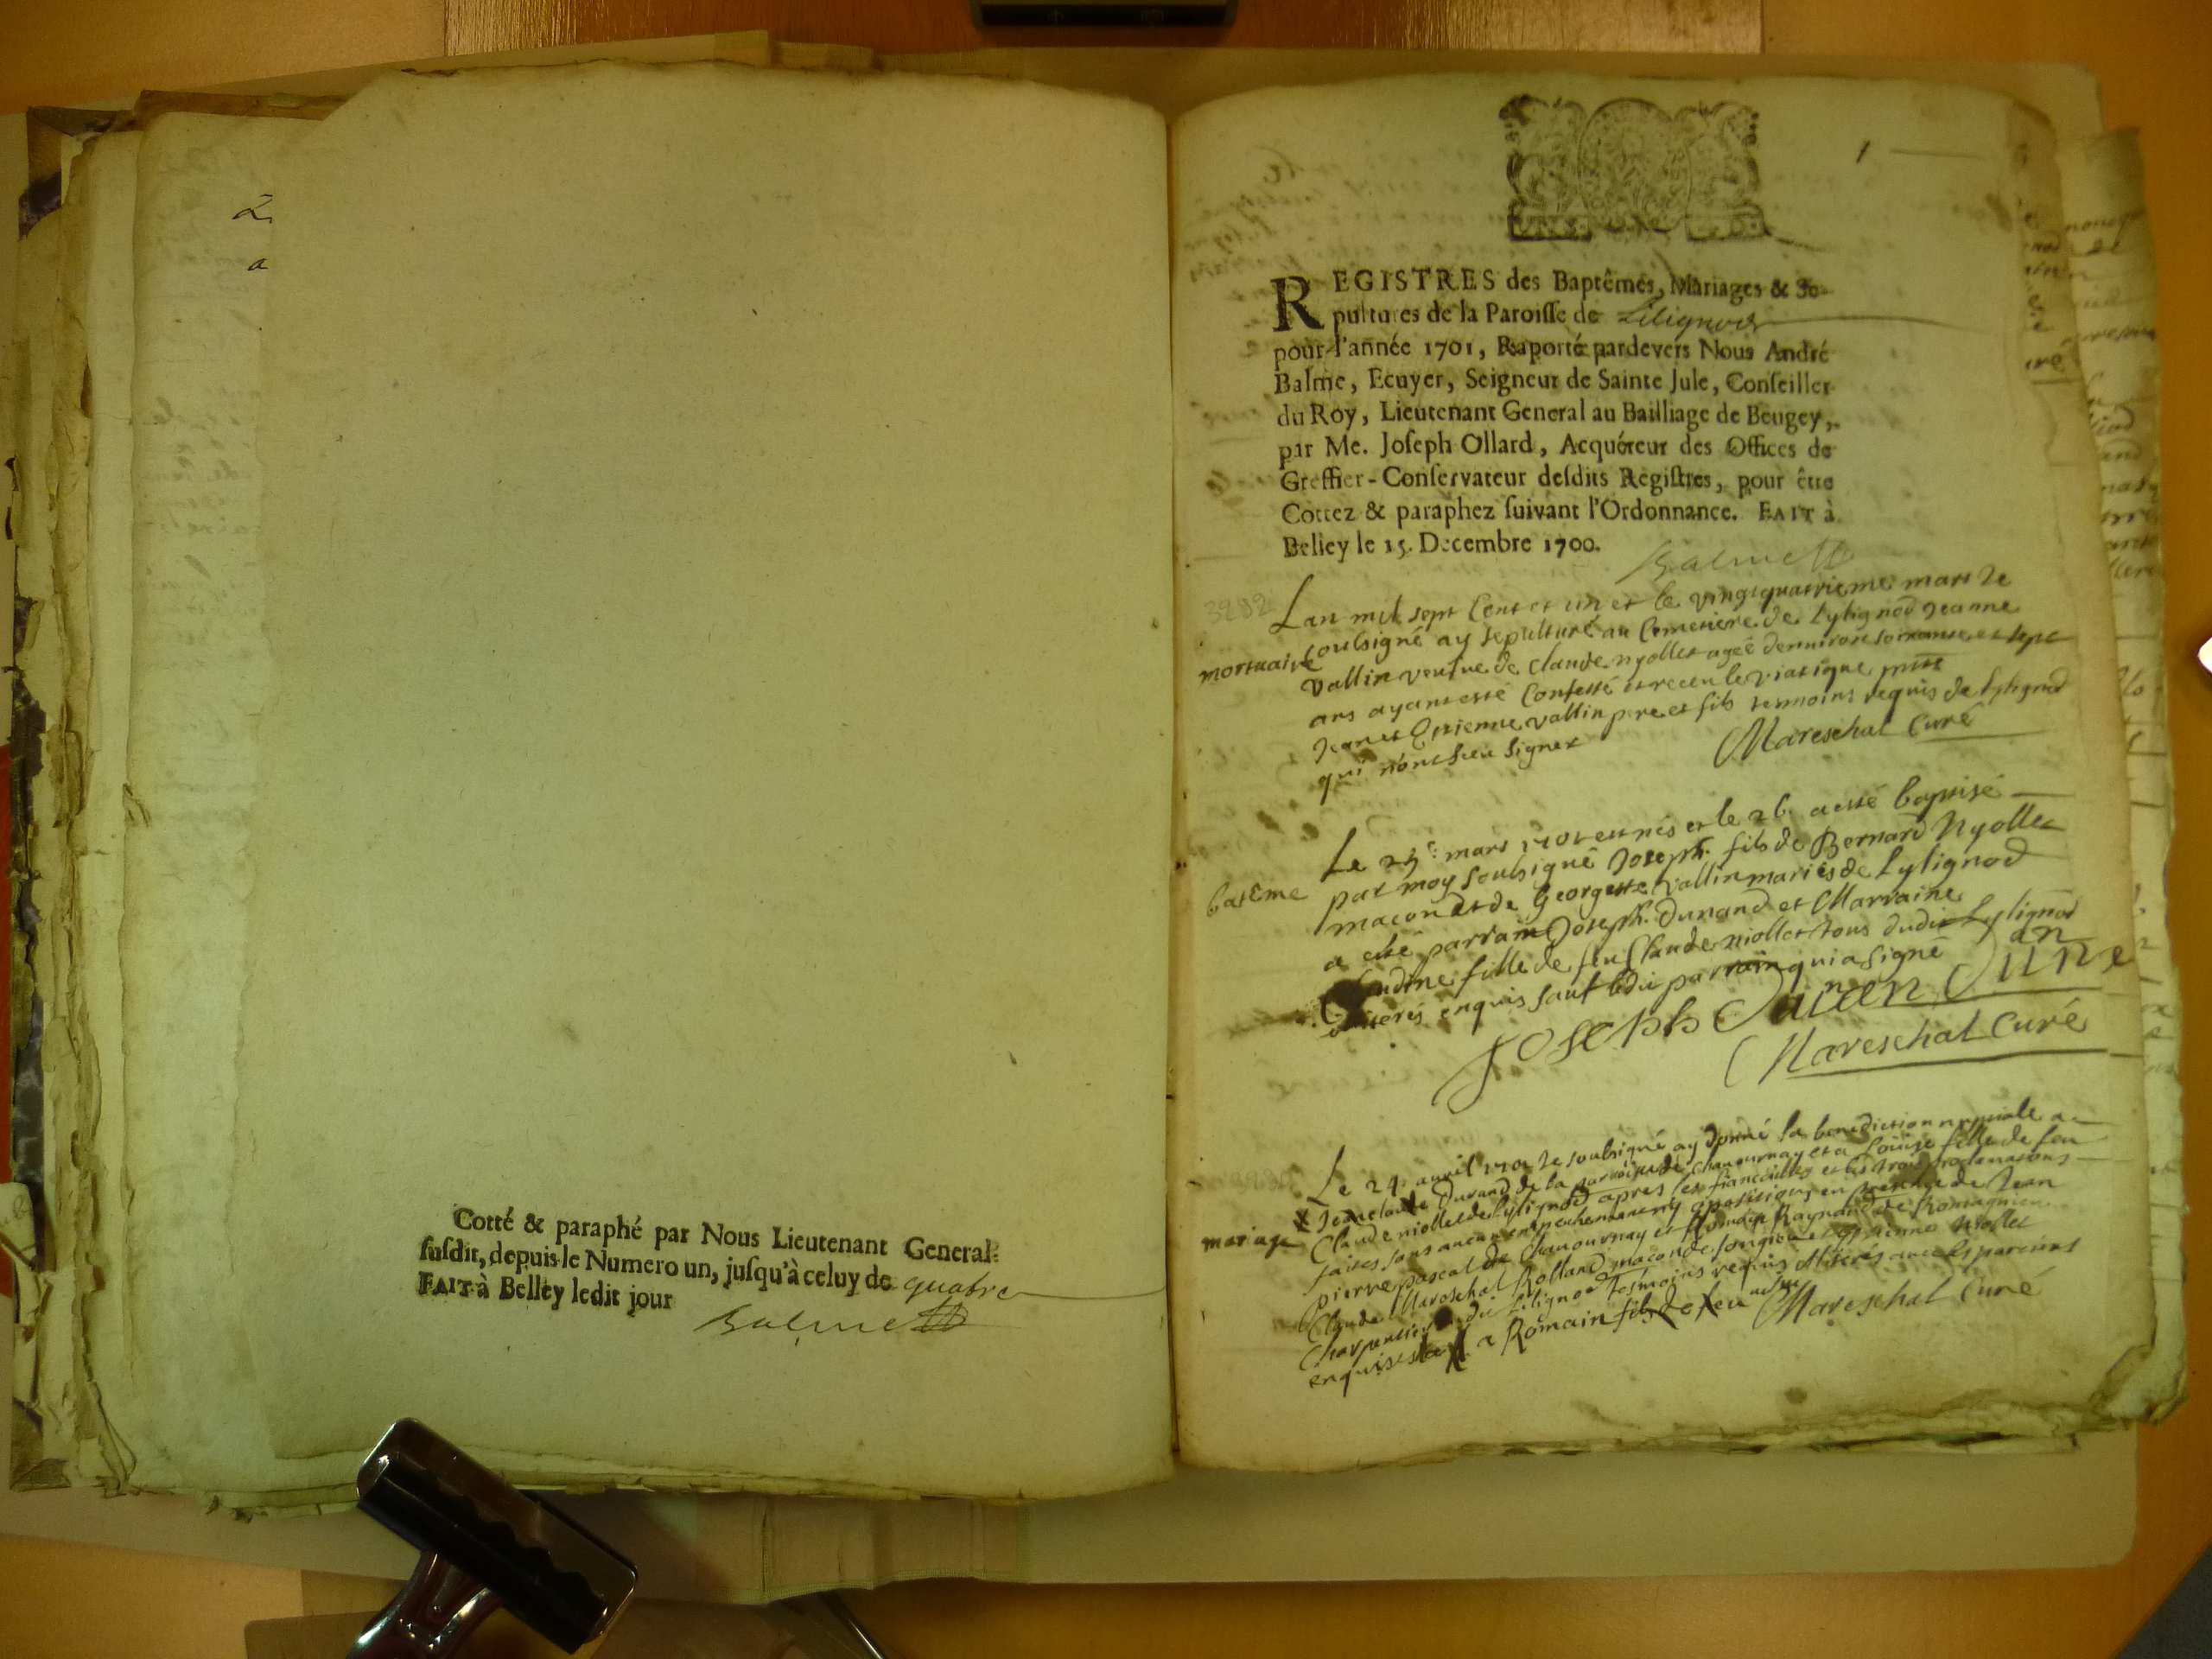 Cotté & paraphé par Nous Lieutenant General
ſuſdit, depuis le Numero un, juſqu'à celuy de quatre
FAIT à Belley ledit jour
Balme
1
REGISTRES des Baptêmes, Mariages & Se-
pultures de la Paroiſſe de Lilignod
pour l'année 1701, Raporté pardevers Nous André
Balme, Ecuyer, Seigneur de Sainte Jule, Conſeiller
du Roy, Lieutenant General au Bailliage de Beugey,
par Me. Joſeph Ollard, Acquéreur des Offices de
Greffier-Conſervateur deſdits Regiſtres, pour être
Cottez & paraphez ſuivant l'Ordonnance. FAIT à
Belley le 15. Decembre 1700.
Balme
3292
mortuaire
Lan mil sept Cent et un et le vingtquatrieme mars Je
soubsigné ay sepulturé au Cemetiere de Lylignod Jeanne
Vallin veufve de Claude nyollet agée denviron soixante et sept
ans ayant esté Confessé et receu le viatique
Jean et Estienne vallin pere et fils tesmoins requis de Lylignod
qui n'ont sceu signer
Mareschal Curé
batême
Le 25e mars 1701 est nés et le 26 a esté baptisé
par moy soubsigné Joseph fils de Bernard Nyollet
macon et de Georgette Vallin mariés de Lylignod
a esté parrain Joseph Dunand et Marraine
Claudine fille de feu Claude niollet tous dudit Lylignod
enquis sauf ledit parrain qui a signé
Joseph
Mareschal Curé
mariage
Le 24 avril 1701 Je soubsigné ay donné la benediction nuptiale a
Jeanclaude Durand de la parroisse de Chanournay et a Louise fille de feu
Claude niollet de Lylignod apres les fiancailles et les trois proclamations
faites sans aucun empechement ny opositions en presence de Jean
pierre pascal de Chanournay et Raynaud de Romagnieu
Claude Mareschal Rolland macon de songieu Estienne Niollet
Charpentier du Lilignod Tesmoins requis illiterés avec les parties
enquises a Romain fils de feu
Mareschal Curé